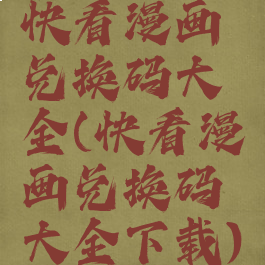 快看漫画
兑换码大
全(快看漫
画兑换码
大全下载)